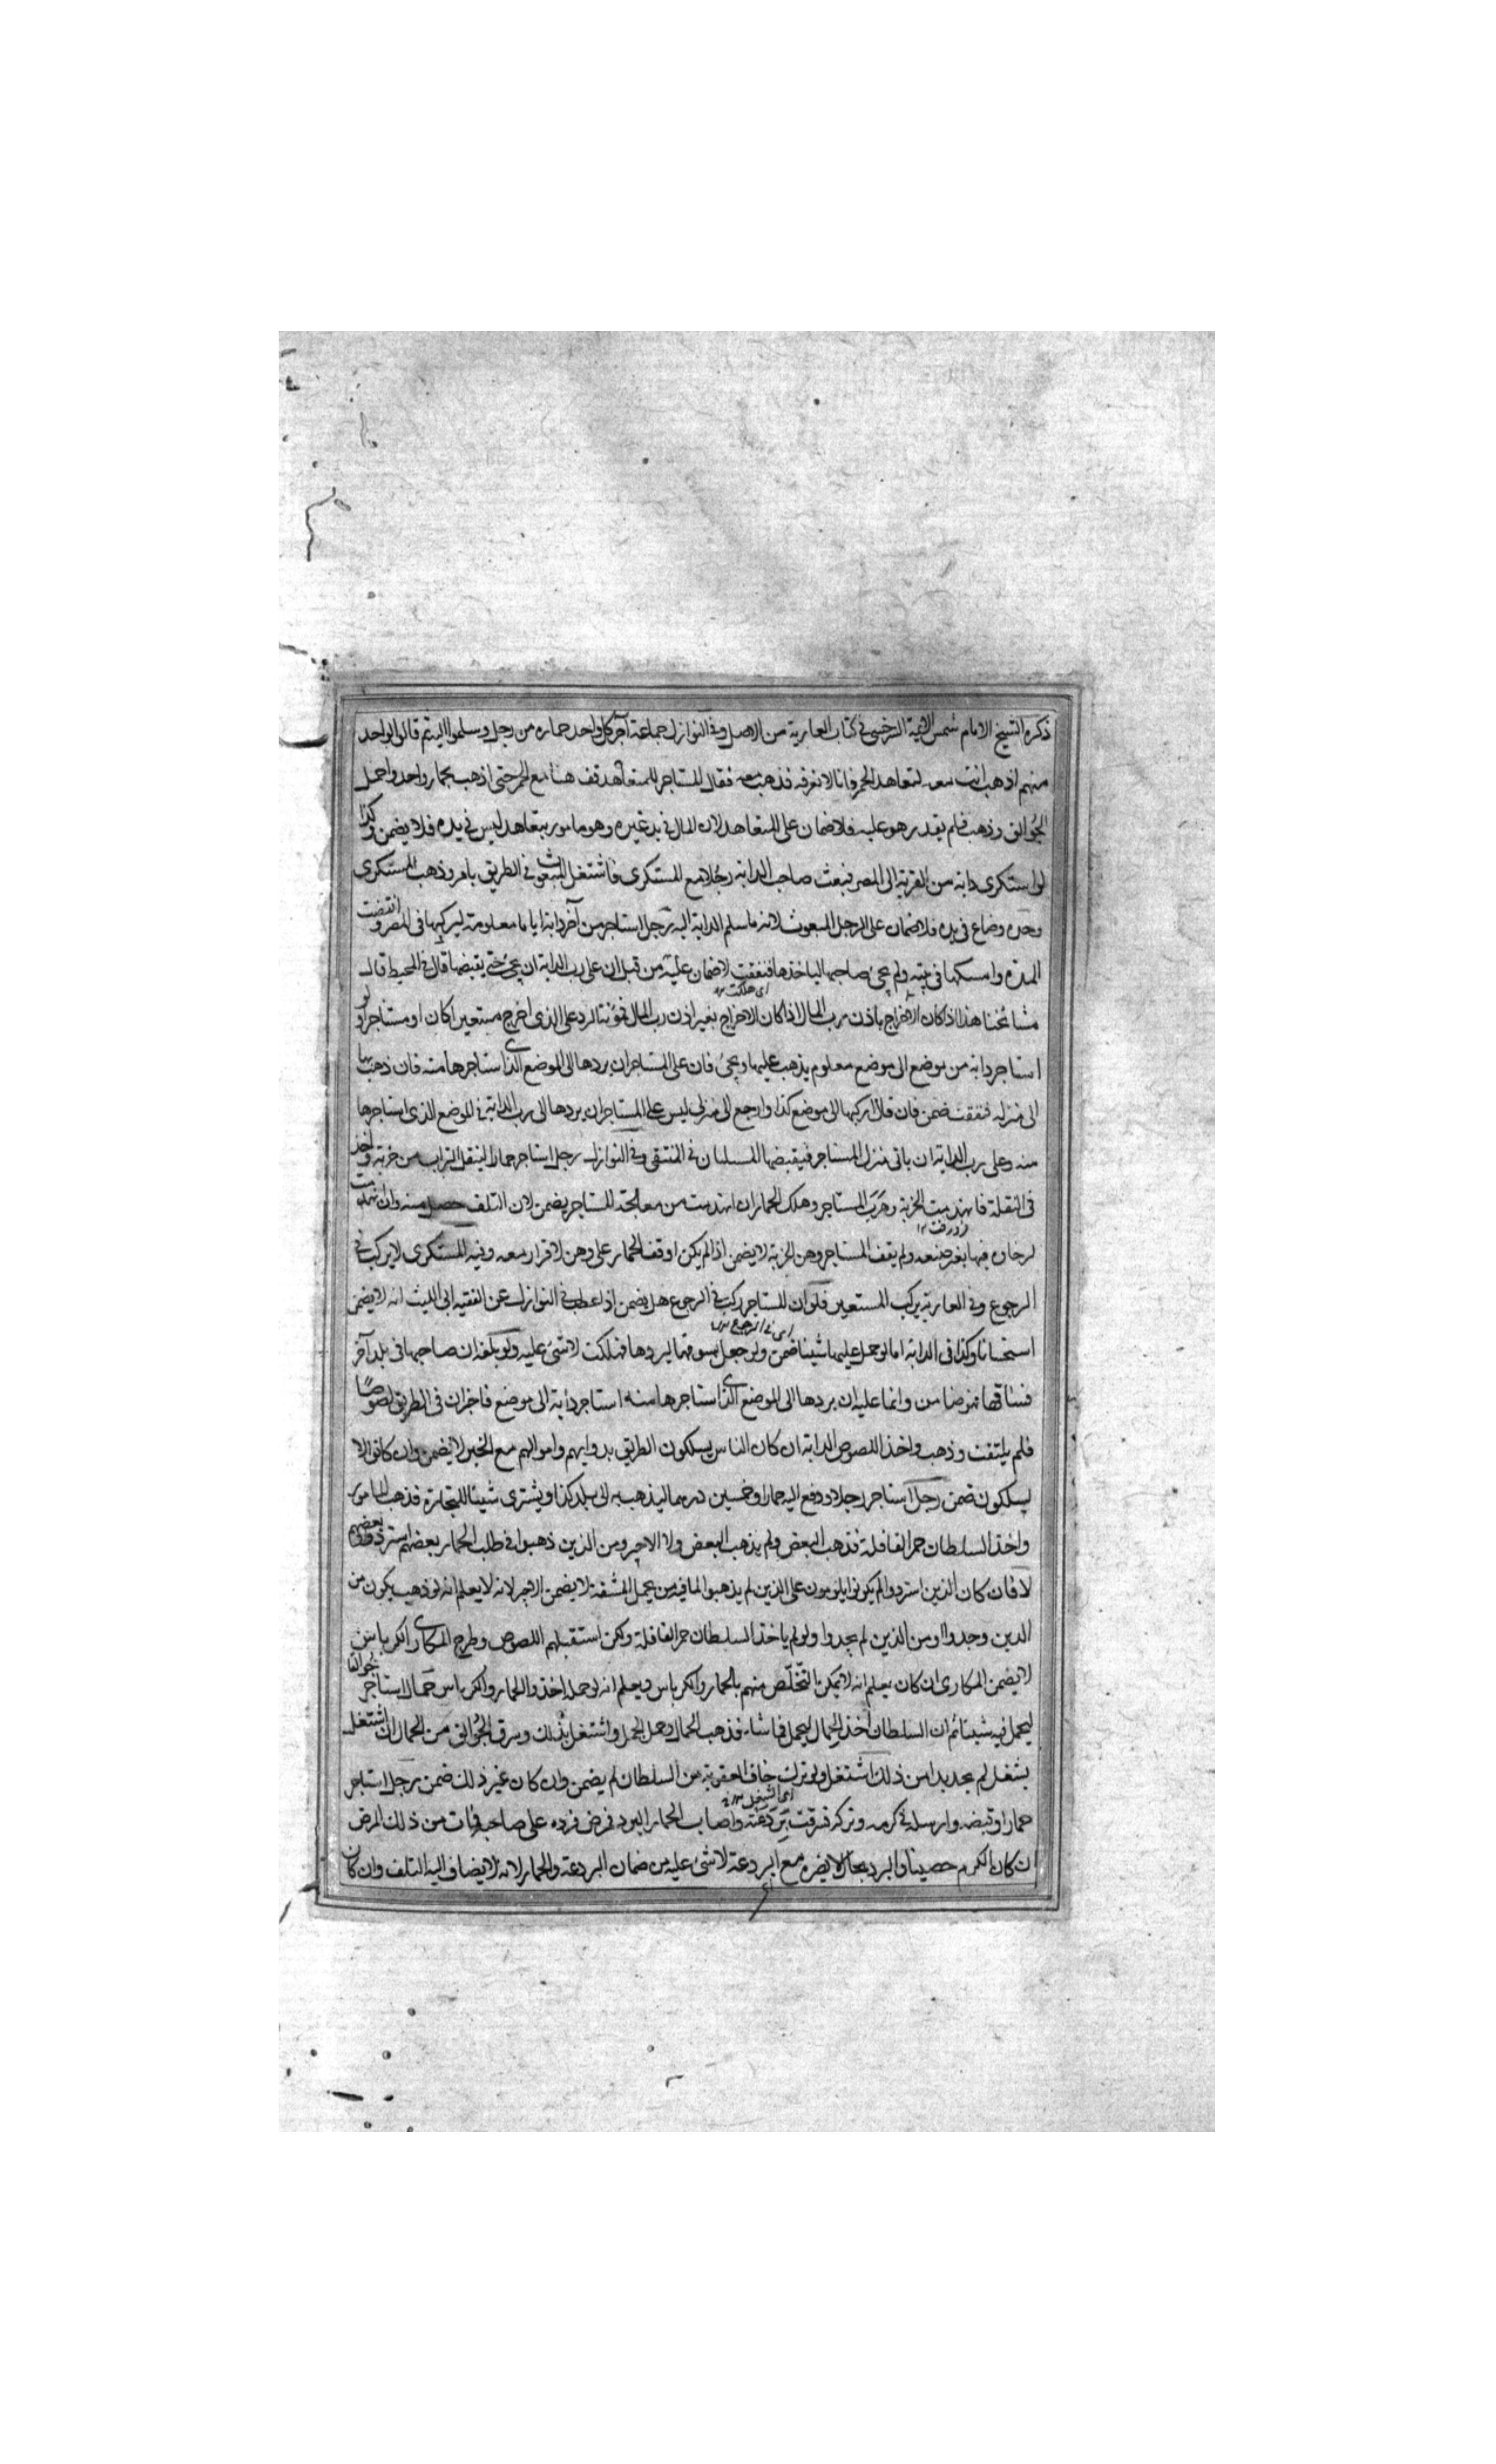 ذكره الشيخ الامام شمس الائمة السرخسى فى كتاب العارية من الاصل وفى النوازل جماعة آجر كل واحد حماره من رجل وسلموا اليه ثم قالوا لواحد
منهم اذهب انت معه لتعاهد الحمر فانا لا نعرفه فذهب معه فقال المستاجر للمتعاهد قف هنا مع الحمر حتى اذهب بحمار واحد واحمل
الجوالق وذهب فلم يقدر هو عليه فلا ضمان على المتعاهد لان المال فى يد غيره وهو مامور بتعاهد ليس فى يده فلا يضمن وكذا
لو استكرى دابة من القرية الى المصر فبعث صاحب الدابة رجلا مع المستكرى فاشتغل المبعوث فى الطريق بامر وذهب المستكرى
وحده وضاع فى يده فلا ضمان على الرجل المبعوث لانه ما سلم الدابة اليه رجل استاجر من آخر دابة اياما معلومة ليركبها فى المصر وانقضت
المدة وامسكها فى بيته ولم يجئ صاحبها لياخذها فنفقت لا ضمان عليه من قبل ان على رب الدابة ان يجئ حتى يقبضها قال فى المحيط قال
اى هلكت
مشائخنا هذا اذا كان الاخراج باذن رب المال اذا كان الاخراج بغير اذن رب المال فمؤنة الرد على الذى اخرج مستعيرا كان او مستاجرا ولو
استاجر دابة من موضع الى موضع معلوم يذهب عليها ويجئ فان على المستاجر ان يردها الى الموضع الذى استاجرها منه فان ذهب بها
الى منزله فنفقت ضمن فان قال اركبها الى موضع كذا وارجع الى منزلى ليس على المستاجر ان يردها الى رب الدابة فى الموضع الذى استاجرها
منه وعلى رب الدابة ان ياتى منزل المستاجر فيقبضها المسلمان فى المنتقى وفى النوازل رجل استاجر حمارا لينقل التراب من خربة واخذ
فى النقلة فانهدمت الخربة وهرب المستاجر وهلك الحمار ان انهدمت من معالجة المستاجر يضمن لان التلف حصل منه وان انهدمت
لرخاوة فيها بغير صنعه ولم يقف المستاجر وهن الخربة لا يضمن اذا لم يكن اوقف الحمار على وهن لا قرار معه وفيه المستكرى لا يركب فى
الرجوع وفى العارية يركب المستعير فلو ان المستاجر ركب فى الرجوع هل يضمن اذا عطب فى النوازل عن الفقيه ابى الليث انه لا يضمن
اى فى الرجوع
استحسانا وكذا فى الدابة اما لو حمل عليها شيئا ضمن ولو جعل يسوقها ليردها فهلكت لا شئ عليه ولو بلغه ان صاحبها فى بلد آخر
فساقها فهو ضامن وانما عليه ان يردها الى الموضع الذى استاجرها منه استاجر دابة الى موضع فاخبر ان فى الطريق لصوصا
فلم يلتفت وذهب واخذ اللصوص الدابة ان كان الناس يسلكون الطريق بدوابهم واموالهم مع الخبر لا يضمن وان كانوا لا
يسلكون ضمن رجل استاجر رجلا ودفع اليه حمارا وخمسين درهما ليذهب به الى بلد كذا ويشترى شيئا للتجارة فذهب المامور
واخذ السلطان حمر القافلة فذهب البعض ولم يذهب البعض ولا الاجير ومن الذين ذهبوا فى طلب الحمار بعضهم استردوا وبعضهم
لا فان كان الذين استردوا لم يكونوا يلومون على الذين لم يذهبوا لما فيه من تحمل المشقة لا يضمن الاجير لانه لا يعلم انه لو ذهب يكون من
الذين وجدوا او من الذين لم يجدوا ولو لم ياخذ السلطان حمر القافلة ولكن استقبلهم اللصوص وطرح المكارى الكرباس
لا يضمن المكارى ان كان يعلم انه لا يمكن التخلص منهم بالحمار والكرباس ويعلم انه لو حمله اخذوا الحمار والكرباس حمال استاجر جوالقا
ليحمل فيه شيئا ثم ان السلطان اخذ الحمال ليحمل فما شاء فذهب الحمال وحمل الحمل واشتغل بذلك وسرق الجوالق من الحمال ان اشتغل
بشغل لم يجد بدا من ذلك اشتغل ولو ترك خاف العقوبة من السلطان لم يضمن وان كان غير ذلك ضمن رجل استاجر
حمارا وقبضه وارسله فى كرمه وتركه فسرقت بردعته واصاب الحمار البرد فمرض فرده على صاحبه فمات من ذلك المرض
ان كان الكرم حصينا والبرد بحال لا يضره مع البردعة لا شئ عليه من ضمان البردعة والحمار لانه لا يضاف اليه التلف وان كان